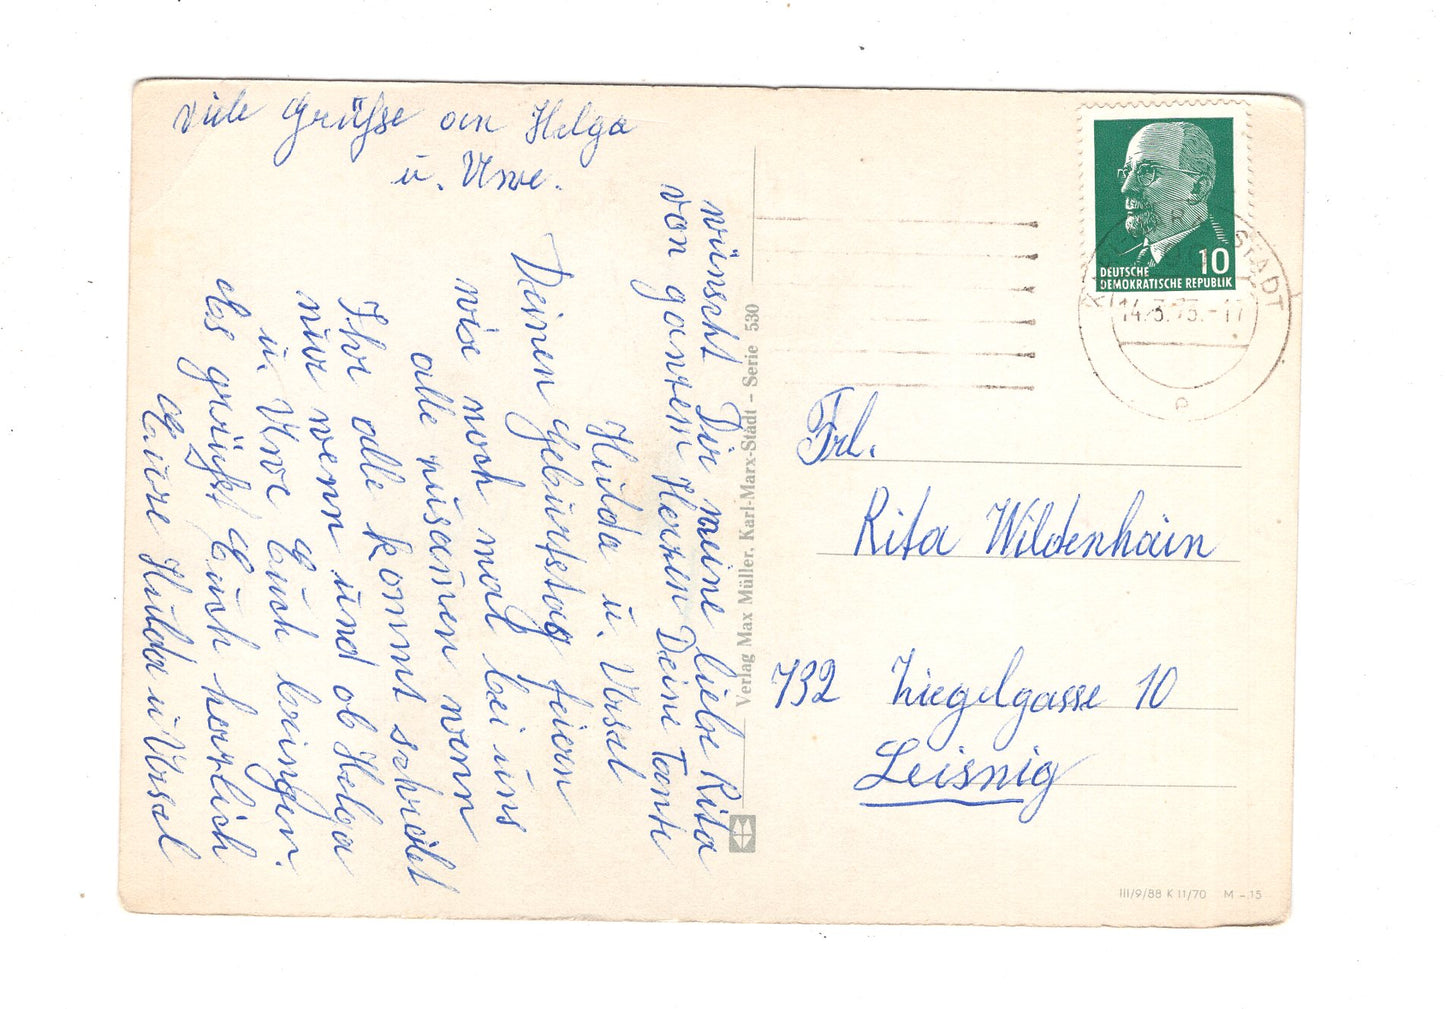 viele Grüße an Helga
u. Uwe.
wünscht Dir meine liebe Rita
von ganzem Herzen Deine Tante
Hulda u. Ursel
Deinen Geburtstag feiern
wir noch mal bei uns
alle zusamen wenn
Ihr alle kommt schreibt
nur wenn und ob Helga
u. Uwe Euch bringen.
Es grüßt Euch herzlich
Eure Hulda u Ursel
Verlag Max Müller, Karl-Marx-Stadt – Serie 530
10
DEUTSCHE
DEMOKRATISCHE REPUBLIK
14.3.75.-17
P
Frl.
Rita Wildenhain
732 Ziegelgasse 10
Leisnig
III/9/88 K 11/70 M -.15